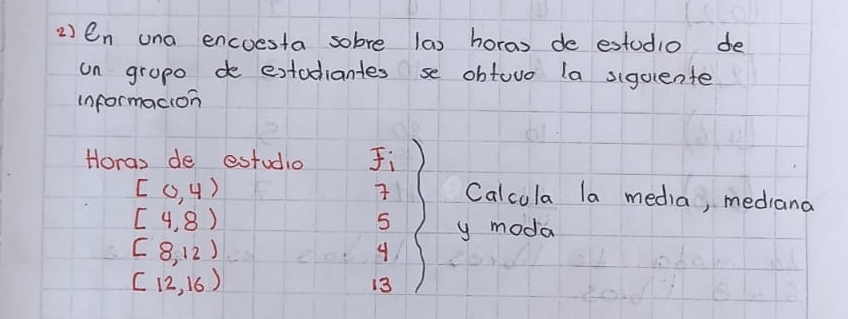 2) En una encuesta sobre las horas de estudio de
un grupo de estudiantes se obtuvo la siguiente
información
Horas de estudio Fi
[0,4) 7
[4,8) 5
[8,12) 4
[12,16) 13
Calcula la media, mediana
y moda